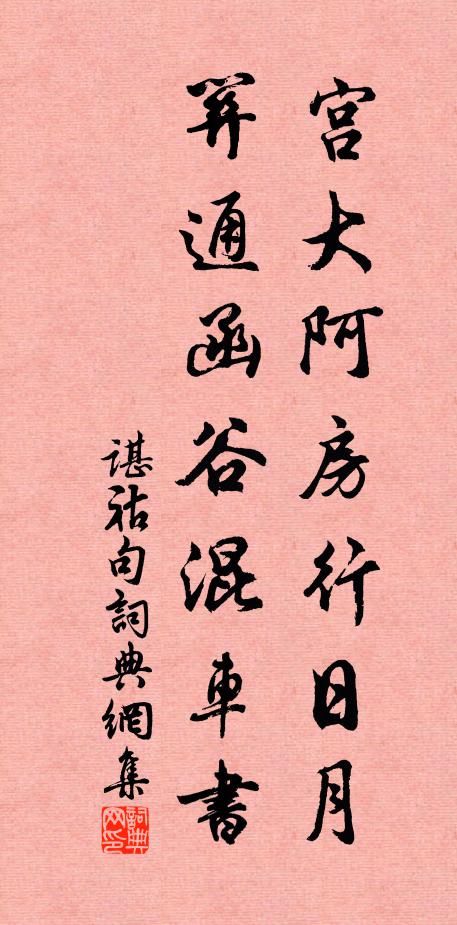 宮大阿房行日月
關通函谷混車書
諶祜句詞典網集
詞典
网印